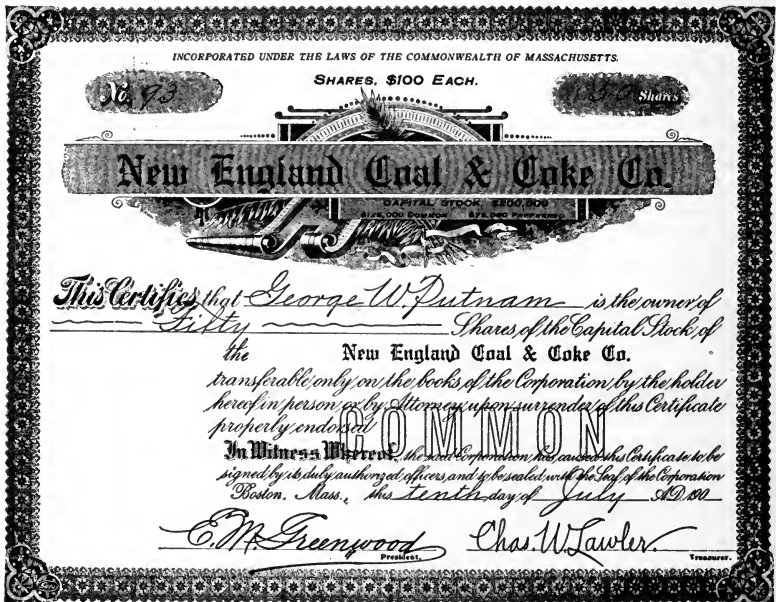 INCORPORATED UNDER THE LAWS OF THE COMMONWEALTH OF MASSACHUSETTS.
SHARES, $100 EACH.
No. 93 50 Shares
New England Coal & Coke Co.
CAPITAL STOCK, $200,000
$125,000 COMMON $75,000 PREFERRED
This Certifies that George W. Putnam is the owner of
Fifty Shares of the Capital Stock of
the New England Coal & Coke Co.
transferable only on the books of the Corporation by the holder
hereof in person or by Attorney upon surrender of this Certificate
properly endorsed
COMMON
In Witness Whereof, the said Corporation has caused this Certificate to be
signed by its duly authorized officers, and to be sealed with the Seal of the Corporation
Boston, Mass., this tenth day of July A.D. 190
E. M. Greenwood Chas. W. Lawler.
President. Treasurer.